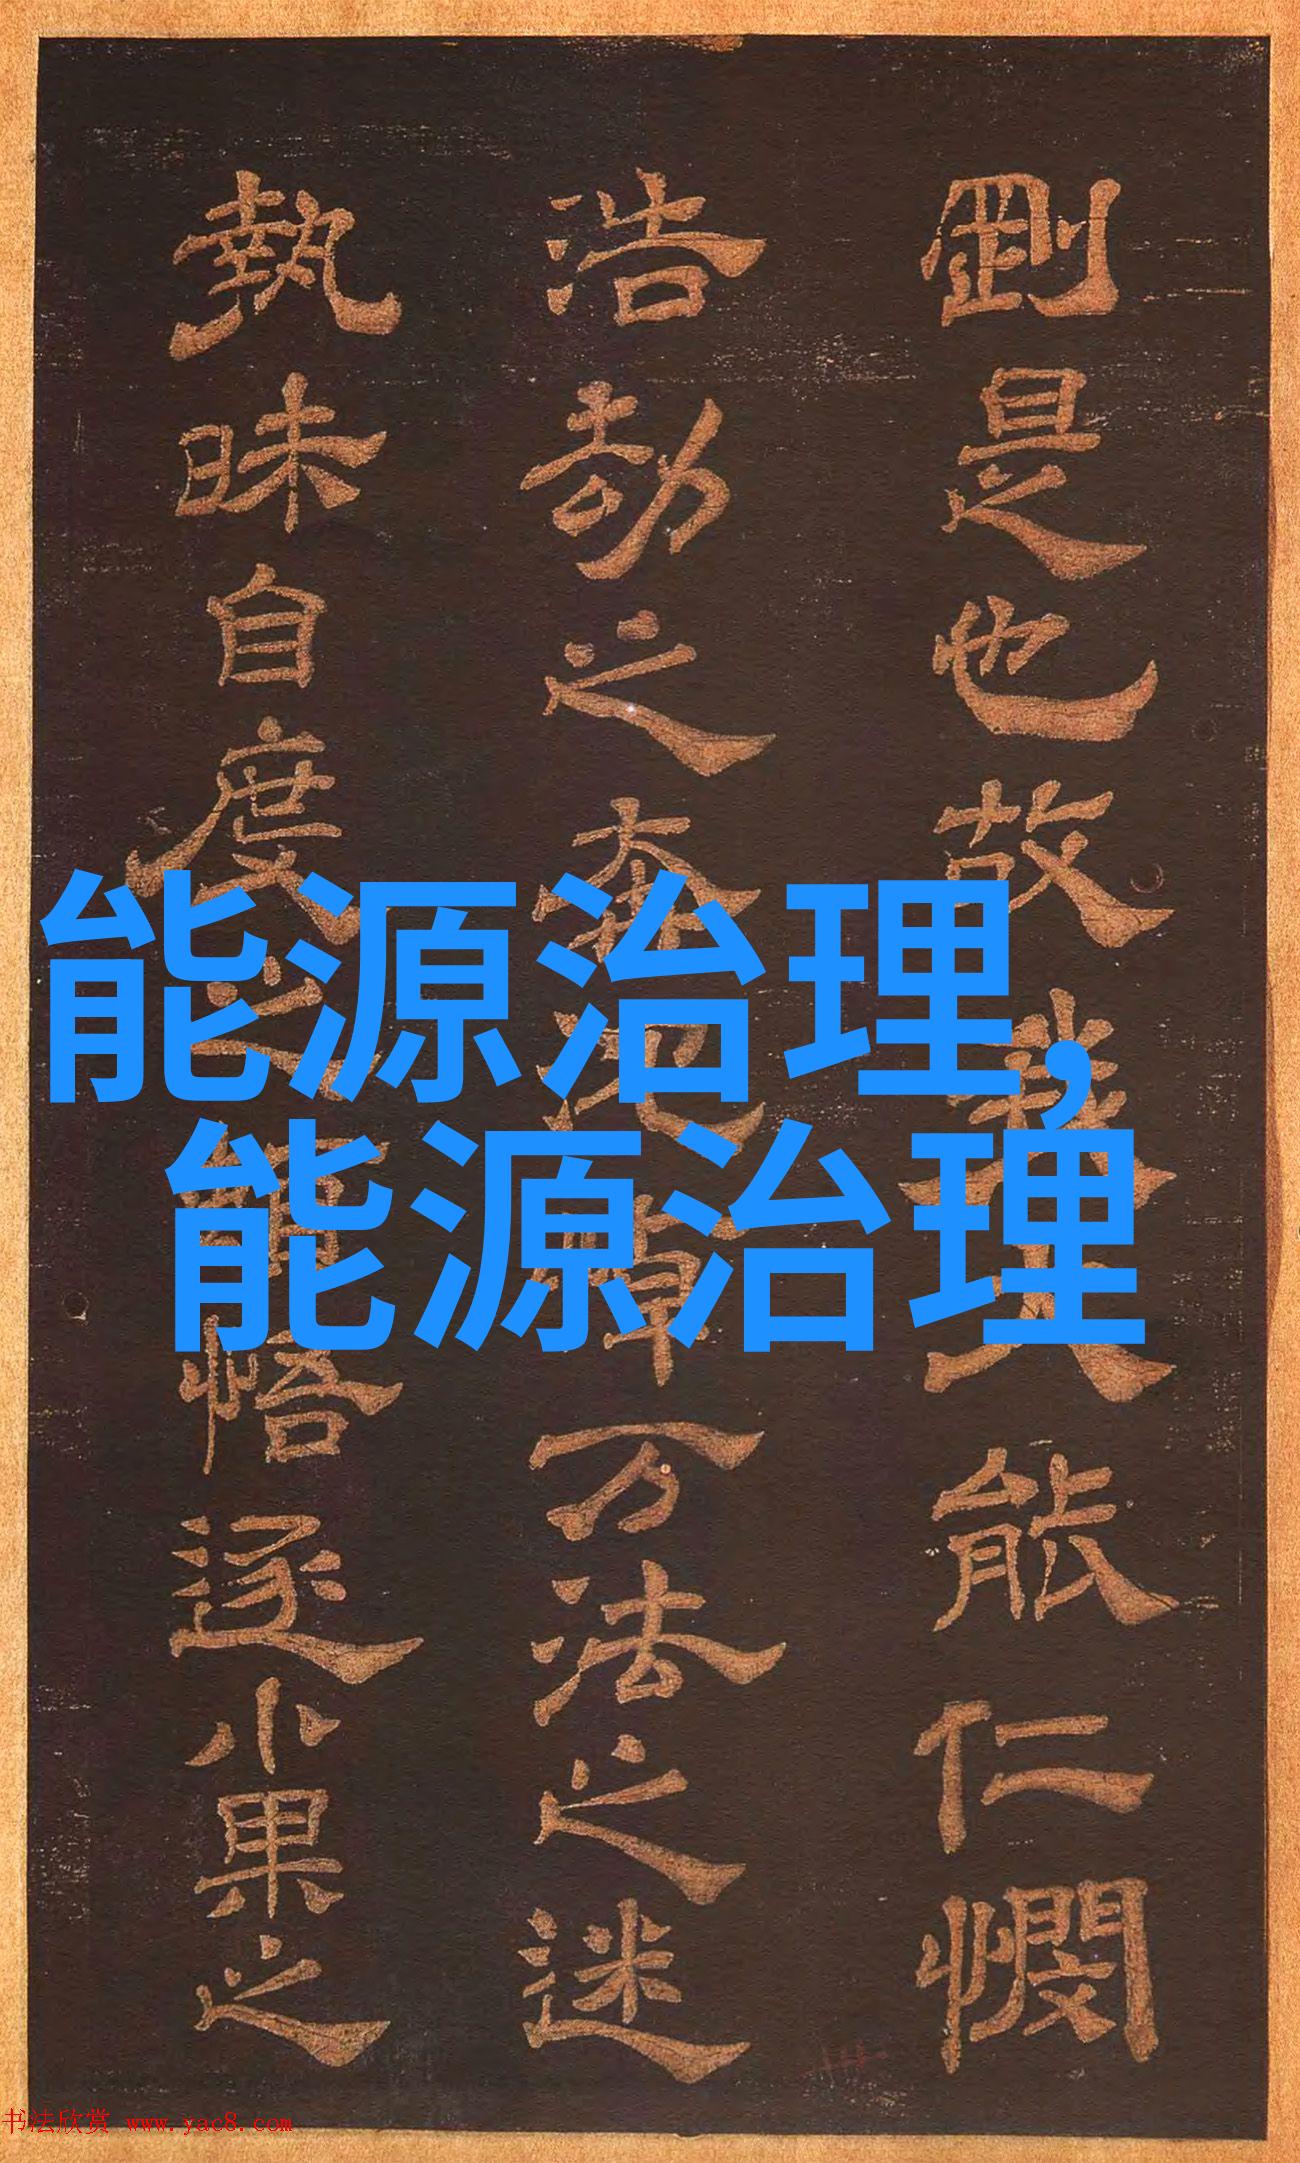 剛是也故我大能仁憫
浩劫之奔悼万法之迷
執昧自度之悟逐小果之
能源治理,
能源治理
书法欣赏 www.yac8.com